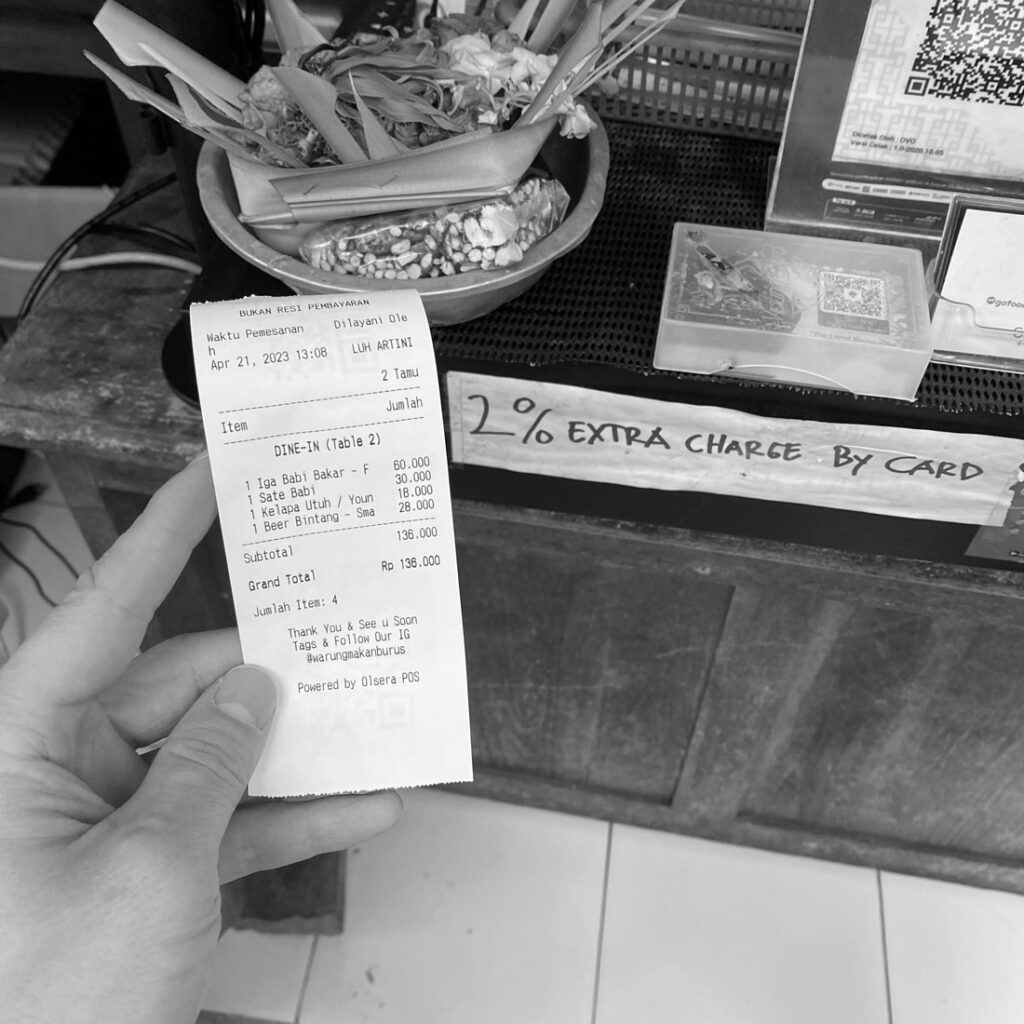 BUKAN RESI PEMBAYARAN
Waktu Pemesanan Dilayani Ole
h
Apr 21, 2023 13:08 LUH ARTINI
2 Tamu
Item Jumlah
DINE-IN (Table 2)
1 Iga Babi Bakar - F 60.000
1 Sate Babi 30.000
1 Kelapa Utuh / Youn 18.000
1 Beer Bintang - Sma 28.000
Subtotal 136.000
Grand Total Rp 136.000
Jumlah Item: 4
Thank You & See u Soon
Tags & Follow Our IG
@warungmakanburus
Powered by Olsera POS
Dicetak Oleh : DVO
Versi Cetak : 1.0-2020.10.05
gofood
2% EXTRA CHARGE BY CARD